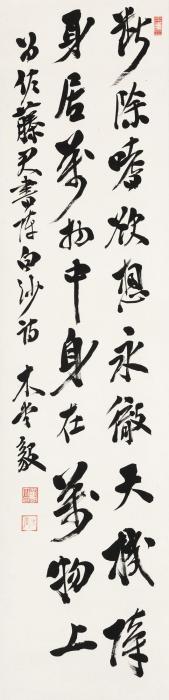 断除嗜欲想永徹天機障
身居萬物中身在萬物上
為佐藤君書陳白沙詩 木堂毅